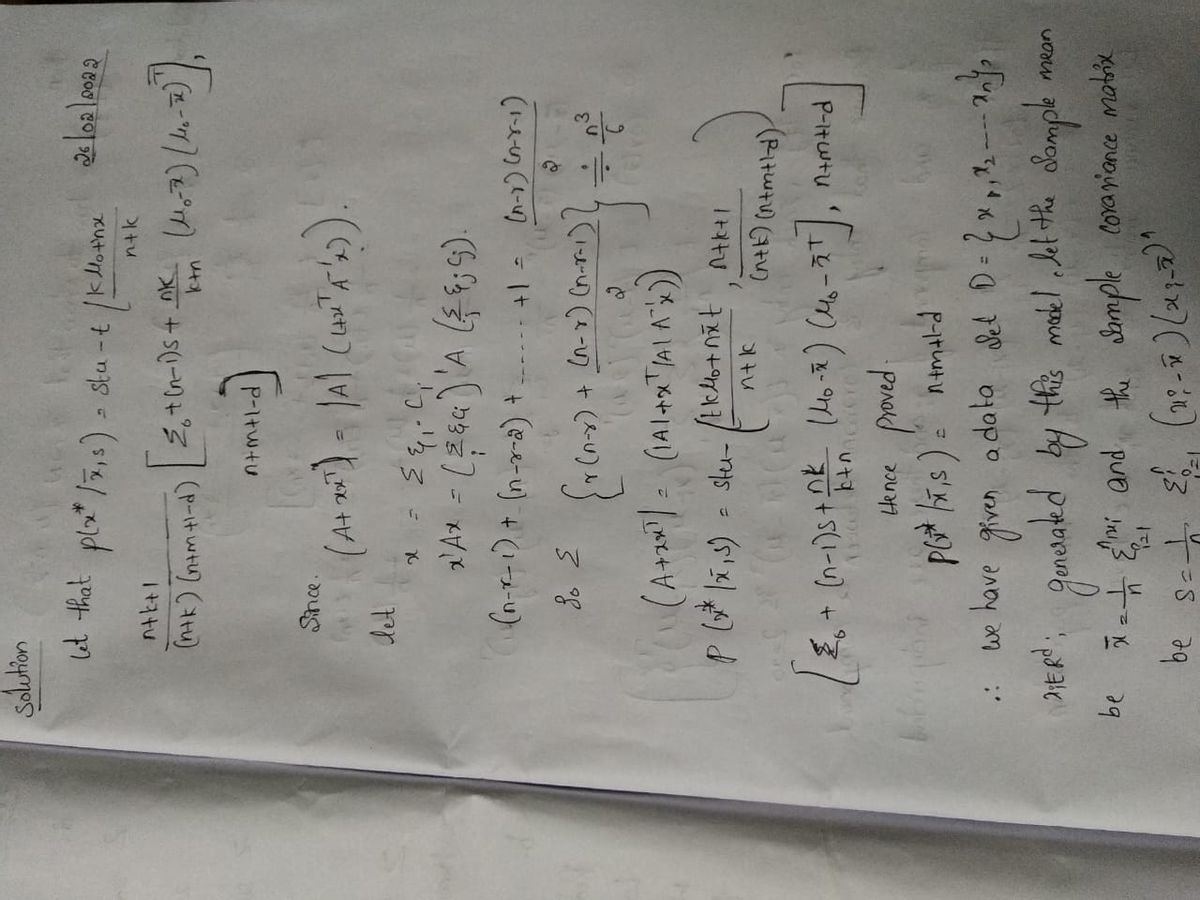 Solution
26/02/2022
Let that p(x*/x̄,s) = stu-t (kμ₀+nx / n+k
n+k+1 / (n+k)(n+m+1-d) [Σ₀+(n-1)s+ nk/k+n (μ₀-x̄)(μ₀-x̄)ᵀ],
n+m+1-d)
Since.
(A+xxᵀ) = |A| (1+xᵀA⁻¹x)).
let x = Σ ξᵢ·cᵢ
x'Ax = (Σᵢ ξᵢcᵢ)' A (Σⱼ ξⱼcⱼ).
(n-r-1)+(n-r-2)+......+1 = (n-r)(n-r-1) / 2
So Σ {r(n-r)+ (n-r)(n-r-1)/2} ≑ n³/6
(A+xxᵀ| = (|A|+xᵀ|A|A⁻¹x))
P(x*/x̄,s) = stu- (tkμ₀+nx̄t / n+k , n+k+1 / (n+k)(n+m+1-d))
[Σ₀ + (n-1)s + nk/k+n (μ₀-x̄)(μ₀-x̄ᵀ], n+m+1-d]
Hence Proved.
P(x*/x̄,s) = n+m+1-d
∴ we have given a data set D = {x₁,x₂----xₙ},
xᵢ∈ℝᵈ; generated by this model, let the sample mean
be x̄ = 1/n Σⁿᵢ₌₁xᵢ and the sample covariance matrix
be S = 1/n Σⁿᵢ₌₁ (xᵢ-x̄)(xᵢ-x̄)ⁿ